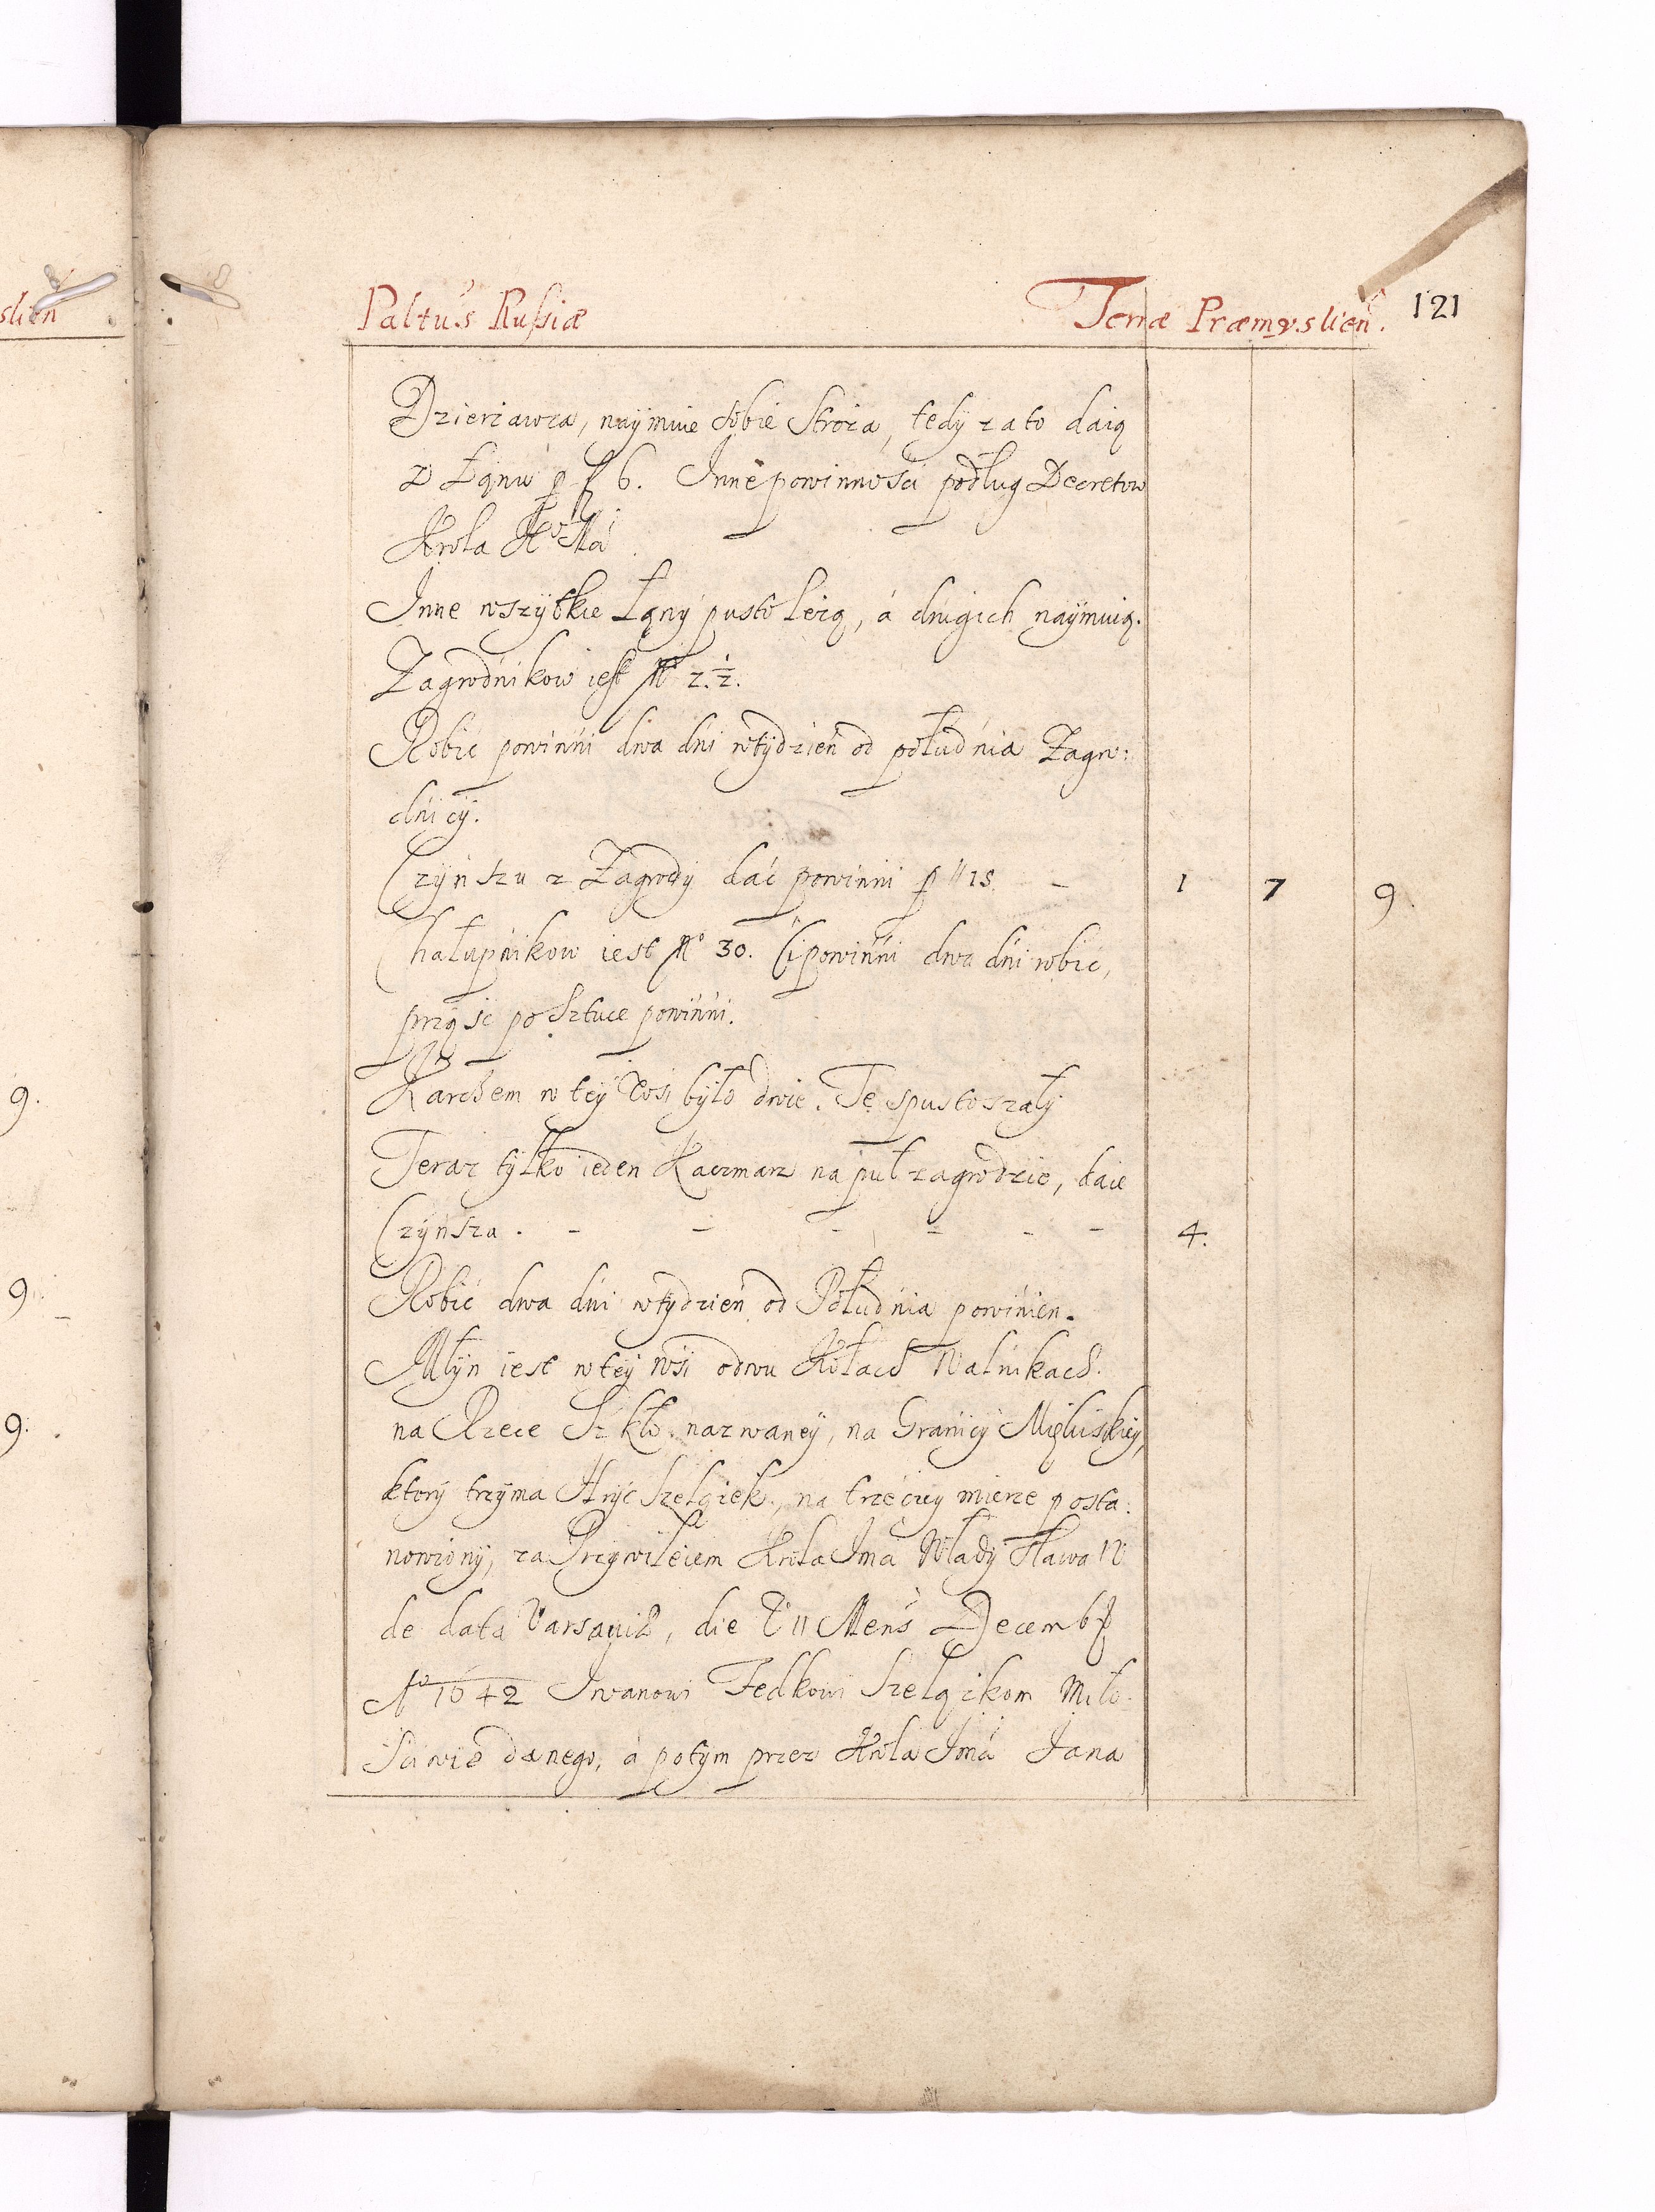 slien
9.
9.
9.
Paltus Russiæ Terræ Præmysliens. 121
Dzierżawca, naÿmuie sobie Stroża, tedÿ za to daią
z Łanu p f 6. Inne powinnosci podług Decretow
Krola Jº Mci
Inne wszÿtkie Łanÿ pusto leżą, á drugich naÿmuią.
Zagrodnikow iest Nº 2.½.
Robić powinni dwa dni wtÿdzień od południa Zagro:
dnicÿ.
Czÿnszu z Zagrodÿ dać powinni p - 1 7 9.
Chałupnikow iest Nº 30. Ci powinni dwa dni robić,
prząść po Sztuce powinni.
Karchem w teÿ Wsi było dwie. Te spustoszałÿ
Teraz tÿlko ieden Kaczmarz na puł zagrodzie, daie
Czÿnsza. - - - - - - 4.
Robić dwa dni wtÿdzień od Południa powinien.
Młÿn iest w teÿ wsi odwu Kołach Walnikach.
na Rzece Szkło nazwaneÿ, na Granicÿ
ktorÿ trzÿma Hrÿć Szelązek, na trzećieÿ mierze posta:
nowionÿ, za Przÿwileiem Krola Jmći Władÿsława IV
de data Varsaviæ, die VII Mens Decembr
Aº 1642 Iwanowi Fedkowi Szelązkom Miło:
sciwie danego, á potÿm przez Krola Jmći Jana